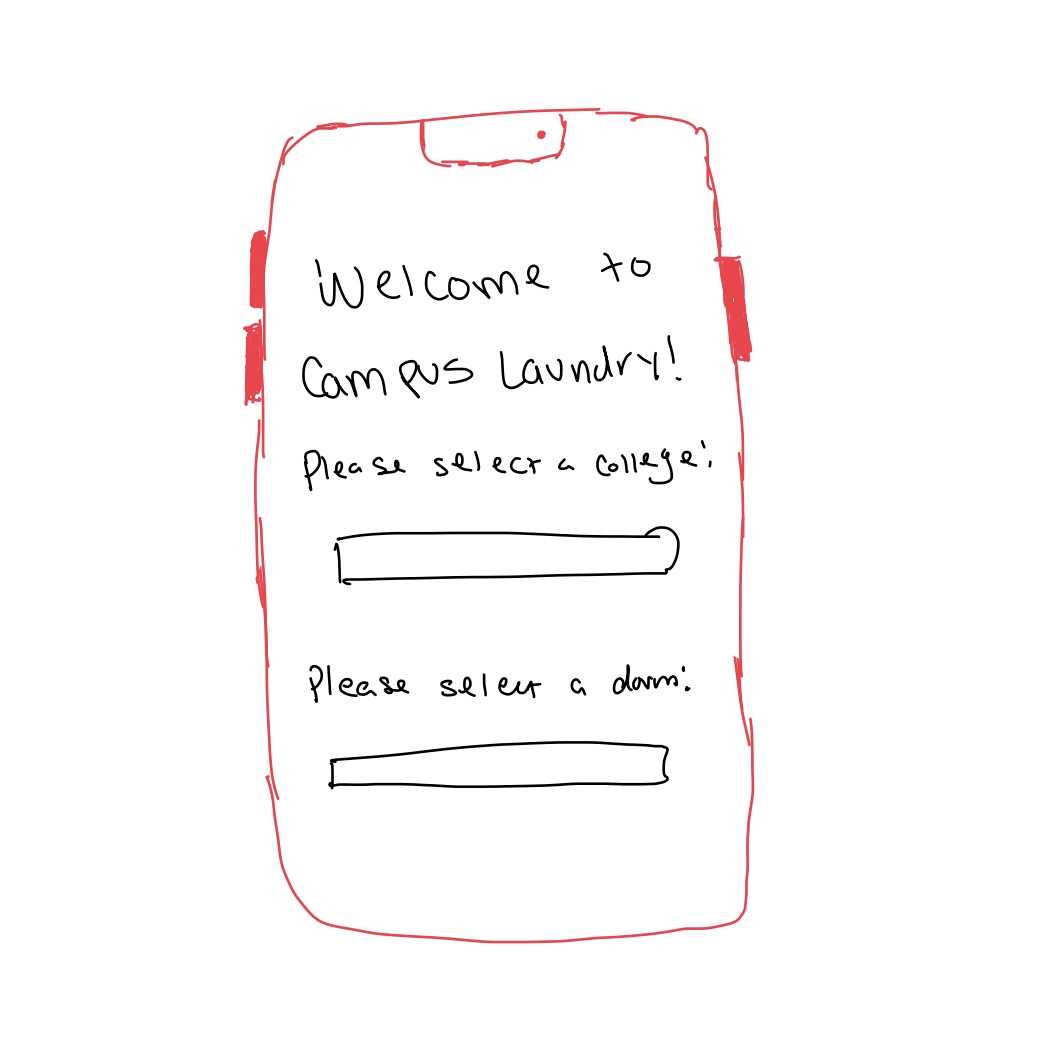 Welcome to
Campus Laundry!
Please select a college:
Please select a dorm: